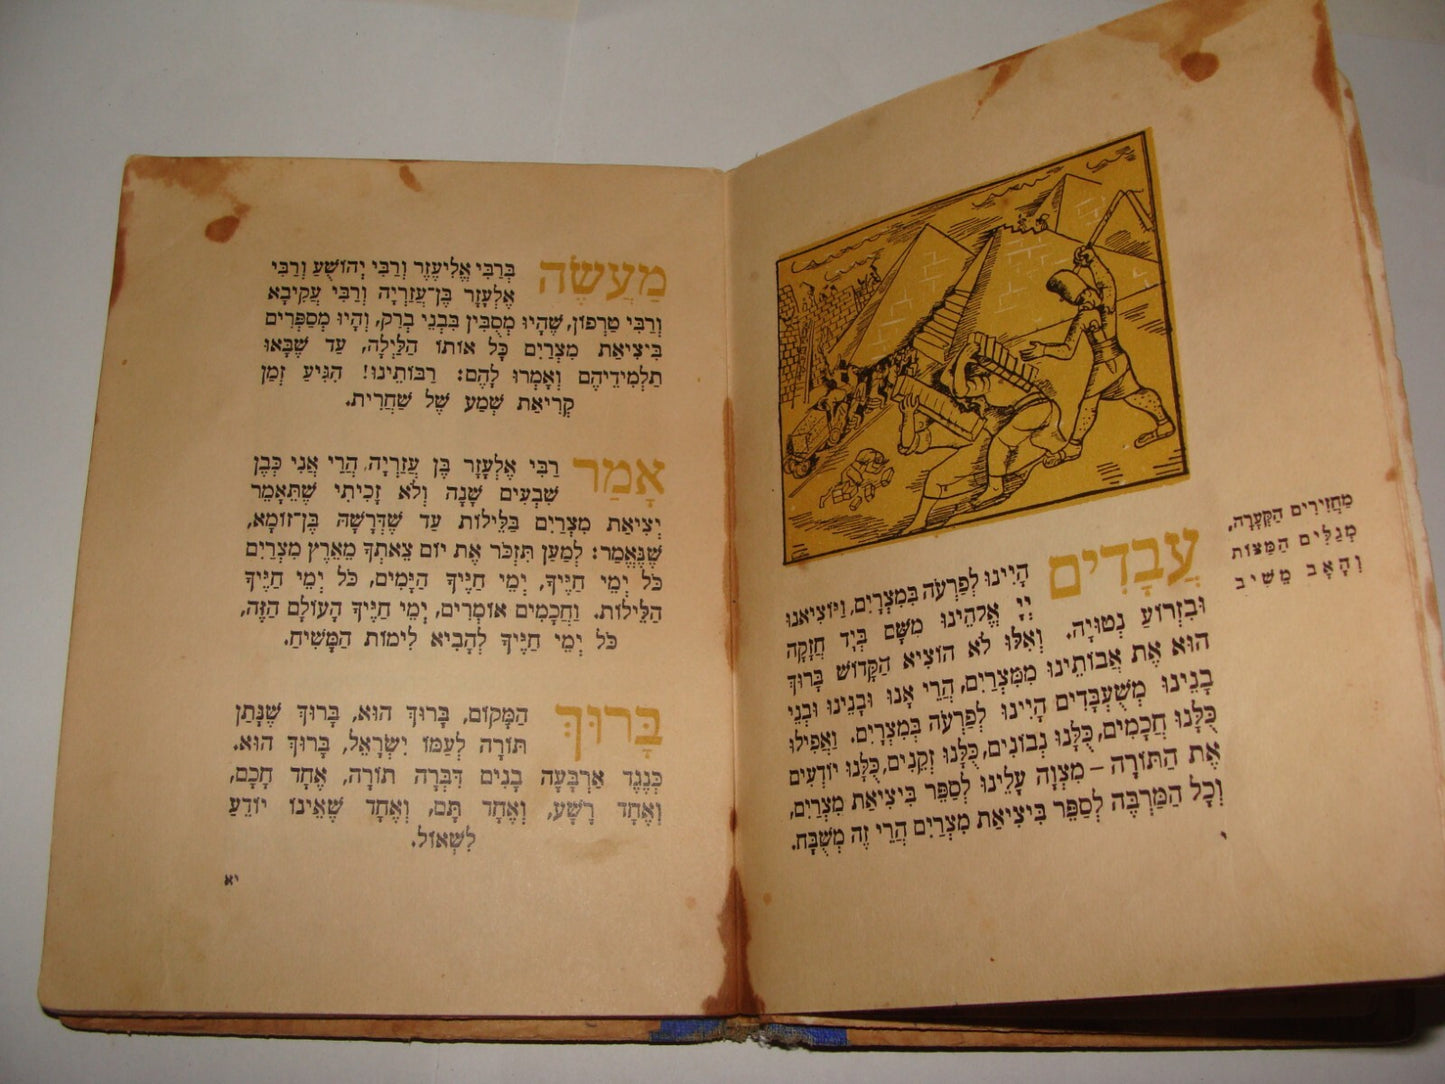 מַחֲזִירִים הַקְּעָרָה,
מְגַלִּים הַמַּצּוֹת
וְהָאָב מֵשִׁיב
עֲבָדִים הָיִינוּ לְפַרְעֹה בְּמִצְרָיִם, וַיּוֹצִיאֵנוּ
יְיָ אֱלֹהֵינוּ מִשָּׁם בְּיָד חֲזָקָה
וּבִזְרוֹעַ נְטוּיָה. וְאִלּוּ לֹא הוֹצִיא הַקָּדוֹשׁ בָּרוּךְ
הוּא אֶת אֲבוֹתֵינוּ מִמִּצְרַיִם, הֲרֵי אָנוּ וּבָנֵינוּ וּבְנֵי
בָנֵינוּ מְשֻׁעְבָּדִים הָיִינוּ לְפַרְעֹה בְּמִצְרָיִם. וַאֲפִילוּ
כֻּלָּנוּ חֲכָמִים, כֻּלָּנוּ נְבוֹנִים, כֻּלָּנוּ זְקֵנִים, כֻּלָּנוּ יוֹדְעִים
אֶת הַתּוֹרָה – מִצְוָה עָלֵינוּ לְסַפֵּר בִּיצִיאַת מִצְרַיִם,
וְכָל הַמַּרְבֶּה לְסַפֵּר בִּיצִיאַת מִצְרַיִם הֲרֵי זֶה מְשֻׁבָּח.
י
מַעֲשֶׂה בְּרַבִּי אֱלִיעֶזֶר וְרַבִּי יְהוֹשֻׁעַ וְרַבִּי
אֶלְעָזָר בֶּן־עֲזַרְיָה וְרַבִּי עֲקִיבָא
וְרַבִּי טַרְפוֹן, שֶׁהָיוּ מְסֻבִּין בִּבְנֵי בְרַק, וְהָיוּ מְסַפְּרִים
בִּיצִיאַת מִצְרַיִם כָּל אוֹתוֹ הַלַּיְלָה, עַד שֶׁבָּאוּ
תַלְמִידֵיהֶם וְאָמְרוּ לָהֶם: רַבּוֹתֵינוּ! הִגִּיעַ זְמַן
קְרִיאַת שְׁמַע שֶׁל שַׁחֲרִית.
אָמַר רַבִּי אֶלְעָזָר בֶּן עֲזַרְיָה, הֲרֵי אֲנִי כְּבֶן
שִׁבְעִים שָׁנָה וְלֹא זָכִיתִי שֶׁתֵּאָמֵר
יְצִיאַת מִצְרַיִם בַּלֵּילוֹת עַד שֶׁדְּרָשָׁהּ בֶּן־זוֹמָא,
שֶׁנֶּאֱמַר: לְמַעַן תִּזְכֹּר אֶת יוֹם צֵאתְךָ מֵאֶרֶץ מִצְרַיִם
כֹּל יְמֵי חַיֶּיךָ, יְמֵי חַיֶּיךָ הַיָּמִים, כֹּל יְמֵי חַיֶּיךָ
הַלֵּילוֹת. וַחֲכָמִים אוֹמְרִים, יְמֵי חַיֶּיךָ הָעוֹלָם הַזֶּה,
כֹּל יְמֵי חַיֶּיךָ לְהָבִיא לִימוֹת הַמָּשִׁיחַ.
בָּרוּךְ הַמָּקוֹם, בָּרוּךְ הוּא, בָּרוּךְ שֶׁנָּתַן
תּוֹרָה לְעַמּוֹ יִשְׂרָאֵל, בָּרוּךְ הוּא.
כְּנֶגֶד אַרְבָּעָה בָנִים דִּבְּרָה תוֹרָה, אֶחָד חָכָם,
וְאֶחָד רָשָׁע, וְאֶחָד תָּם, וְאֶחָד שֶׁאֵינוֹ יוֹדֵעַ
לִשְׁאוֹל.
יא